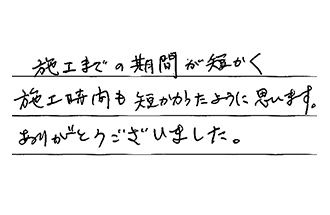 施工までの期間が短かく
施工時間も短かかったように思います。
ありがとうございました。